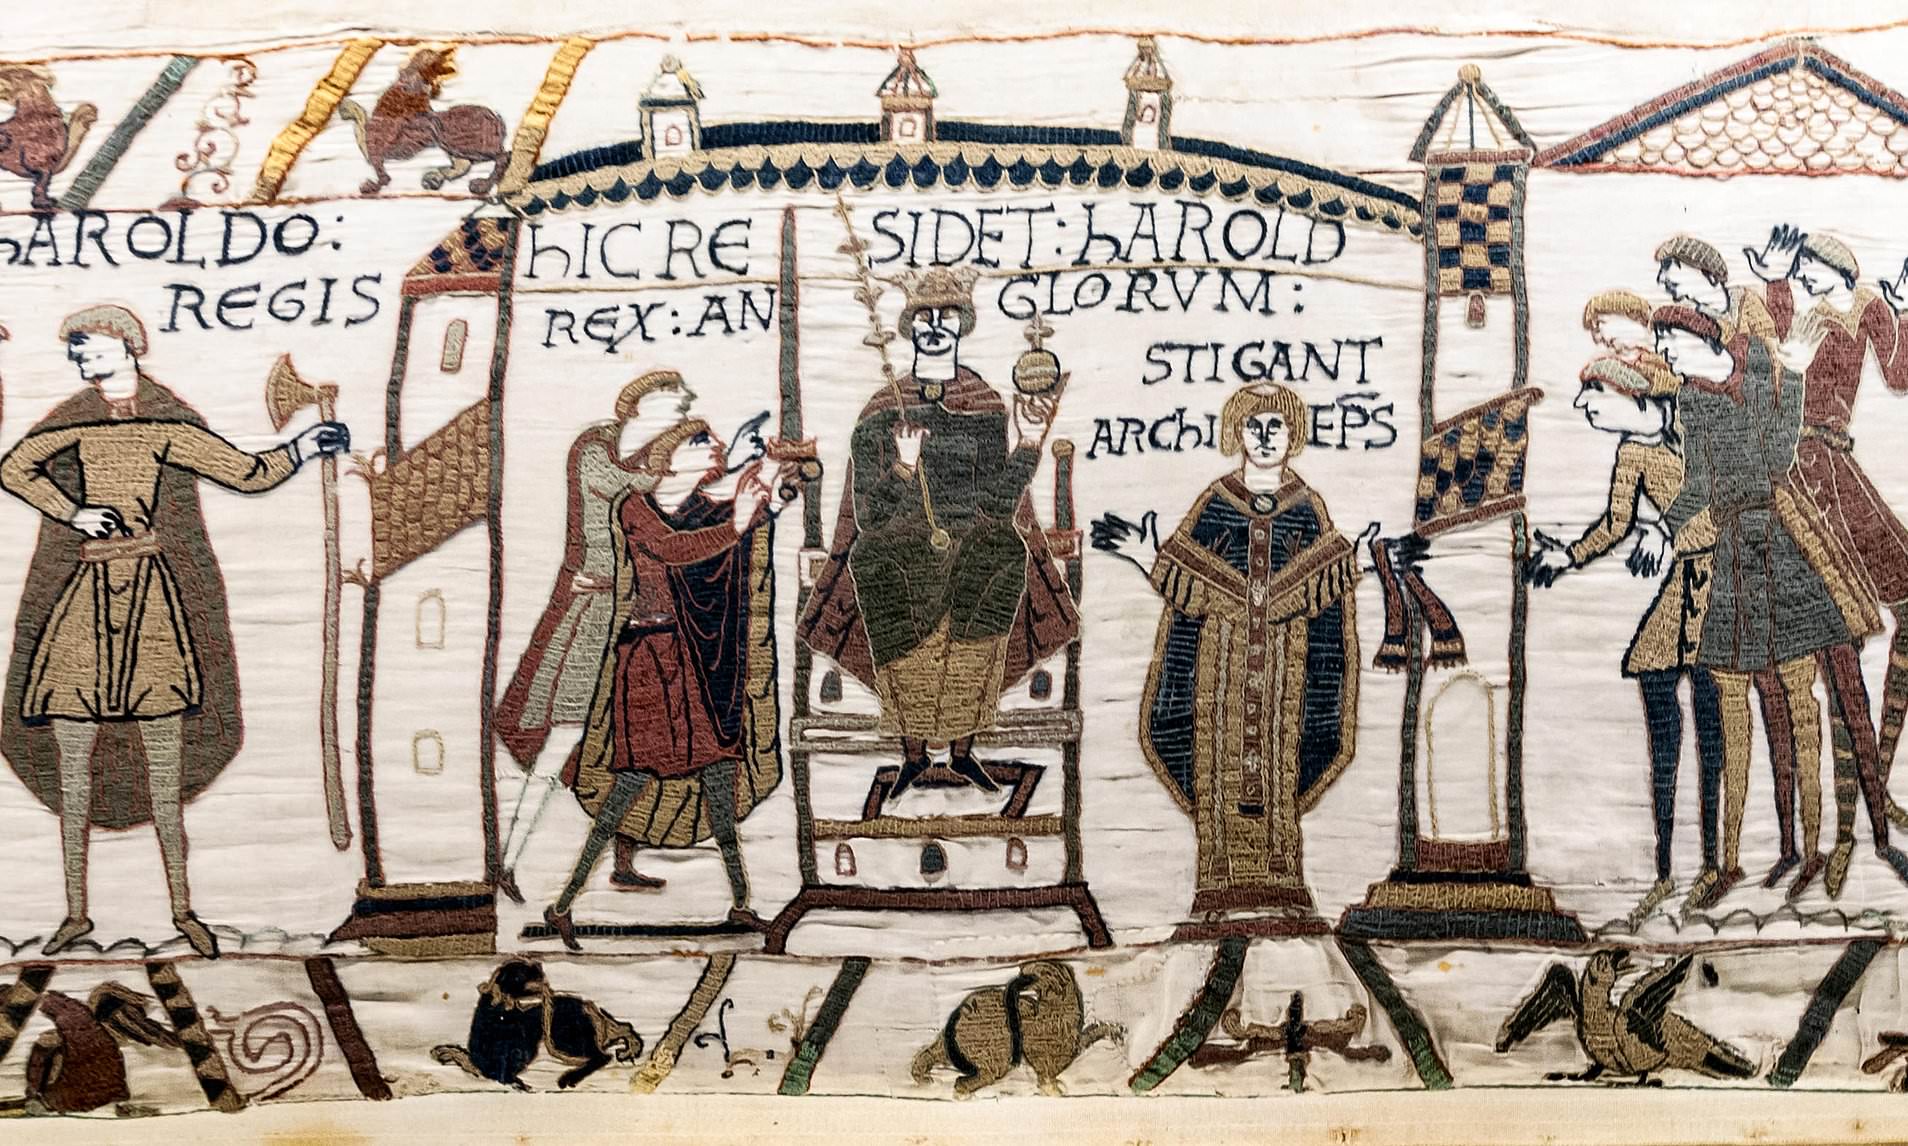 hAROLDO:
REGIS
hIC RE SIDET: hAROLD
REX: AN GLORVM:
STIGANT
ARChI EP̅S